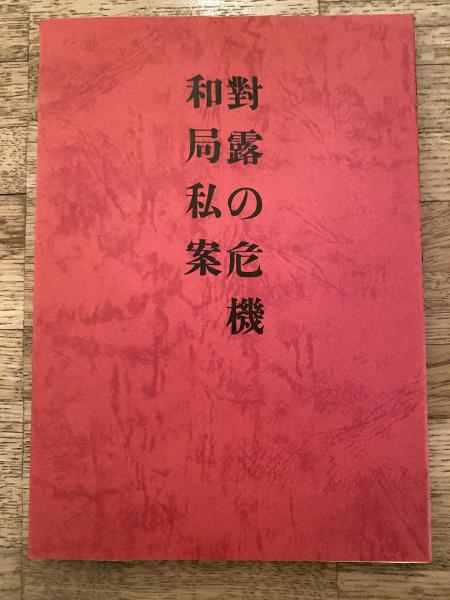 對露の危機
和局私案